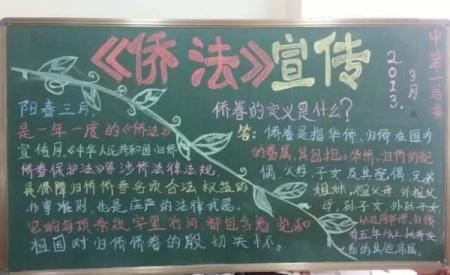 《侨法》宣传
2013.3月
中莘一居委
阳春三月,
是一年一度的《侨法》
宣传月。《中华人民共和国归侨
侨眷保护法》等涉侨法律法规
具保障归侨侨眷各项合法权益的
办事准则,也是庄严的法律武器。
它的每项条款字里行间都包含着党和
祖国对归侨侨眷的殷切关怀。
侨眷的定义是什么?
答:侨眷是指华侨、归侨在国内
的眷属,其包括:华侨、归侨的配
偶,父母,子女及其配偶,兄弟
姐妹,祖父母,外祖父
母,孙子女,外孙子女,
以及同华侨、归侨
有五年以上扶养关
系的其他亲属。